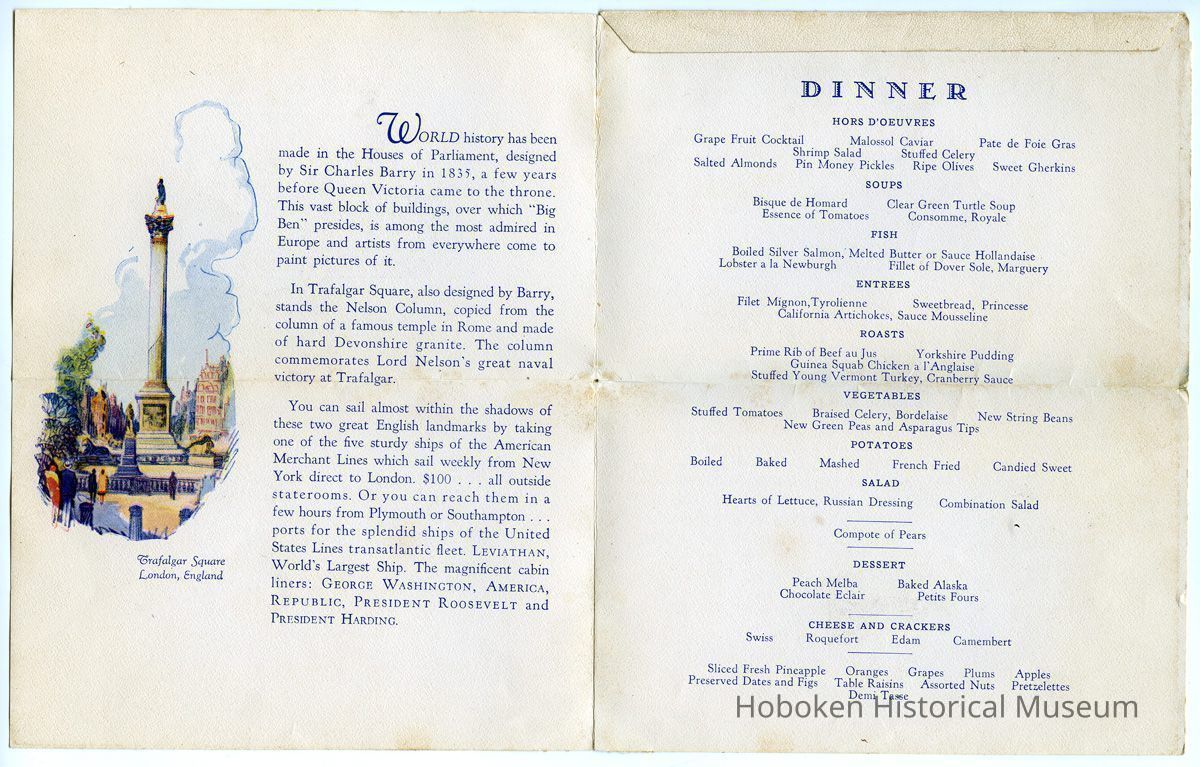 WORLD history has been
made in the Houses of Parliament, designed
by Sir Charles Barry in 1835, a few years
before Queen Victoria came to the throne.
This vast block of buildings, over which "Big
Ben" presides, is among the most admired in
Europe and artists from everywhere come to
paint pictures of it.
In Trafalgar Square, also designed by Barry,
stands the Nelson Column, copied from the
column of a famous temple in Rome and made
of hard Devonshire granite. The column
commemorates Lord Nelson's great naval
victory at Trafalgar.
You can sail almost within the shadows of
these two great English landmarks by taking
one of the five sturdy ships of the American
Merchant Lines which sail weekly from New
York direct to London. $100 . . . all outside
staterooms. Or you can reach them in a
few hours from Plymouth or Southampton . . .
ports for the splendid ships of the United
States Lines transatlantic fleet. LEVIATHAN,
World's Largest Ship. The magnificent cabin
liners: GEORGE WASHINGTON, AMERICA,
REPUBLIC, PRESIDENT ROOSEVELT and
PRESIDENT HARDING.
Trafalgar Square
London, England
DINNER
HORS D'OEUVRES
Grape Fruit Cocktail Malossol Caviar Pate de Foie Gras
Shrimp Salad Stuffed Celery
Salted Almonds Pin Money Pickles Ripe Olives Sweet Gherkins
SOUPS
Bisque de Homard Clear Green Turtle Soup
Essence of Tomatoes Consomme, Royale
FISH
Boiled Silver Salmon, Melted Butter or Sauce Hollandaise
Lobster a la Newburgh Fillet of Dover Sole, Marguery
ENTREES
Filet Mignon,Tyrolienne Sweetbread, Princesse
California Artichokes, Sauce Mousseline
ROASTS
Prime Rib of Beef au Jus Yorkshire Pudding
Guinea Squab Chicken a l'Anglaise
Stuffed Young Vermont Turkey, Cranberry Sauce
VEGETABLES
Stuffed Tomatoes Braised Celery, Bordelaise New String Beans
New Green Peas and Asparagus Tips
POTATOES
Boiled Baked Mashed French Fried Candied Sweet
SALAD
Hearts of Lettuce, Russian Dressing Combination Salad
Compote of Pears
DESSERT
Peach Melba Baked Alaska
Chocolate Eclair Petits Fours
CHEESE AND CRACKERS
Swiss Roquefort Edam Camembert
Sliced Fresh Pineapple Oranges Grapes Plums Apples
Preserved Dates and Figs Table Raisins Assorted Nuts Pretzelettes
Demi Tasse
Hoboken Historical Museum